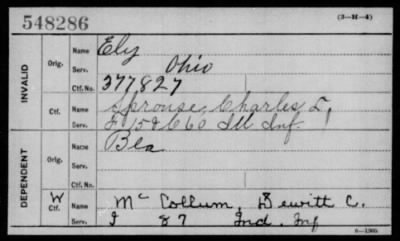 548286
(3—H—4)
INVALID
Orig. Name Ely
Serv. Ohio
Ctf. No. 377,827
Ctf. Name Sprouse, Charles L,
Serv. F 152 & G 60 Ill Inf.
DEPENDENT
Orig. Name Bea
Serv.
Ctf. No.
W Ctf. Name McCollum, Dewitt C.
Serv. I 87 Ind. Inf
6—1905